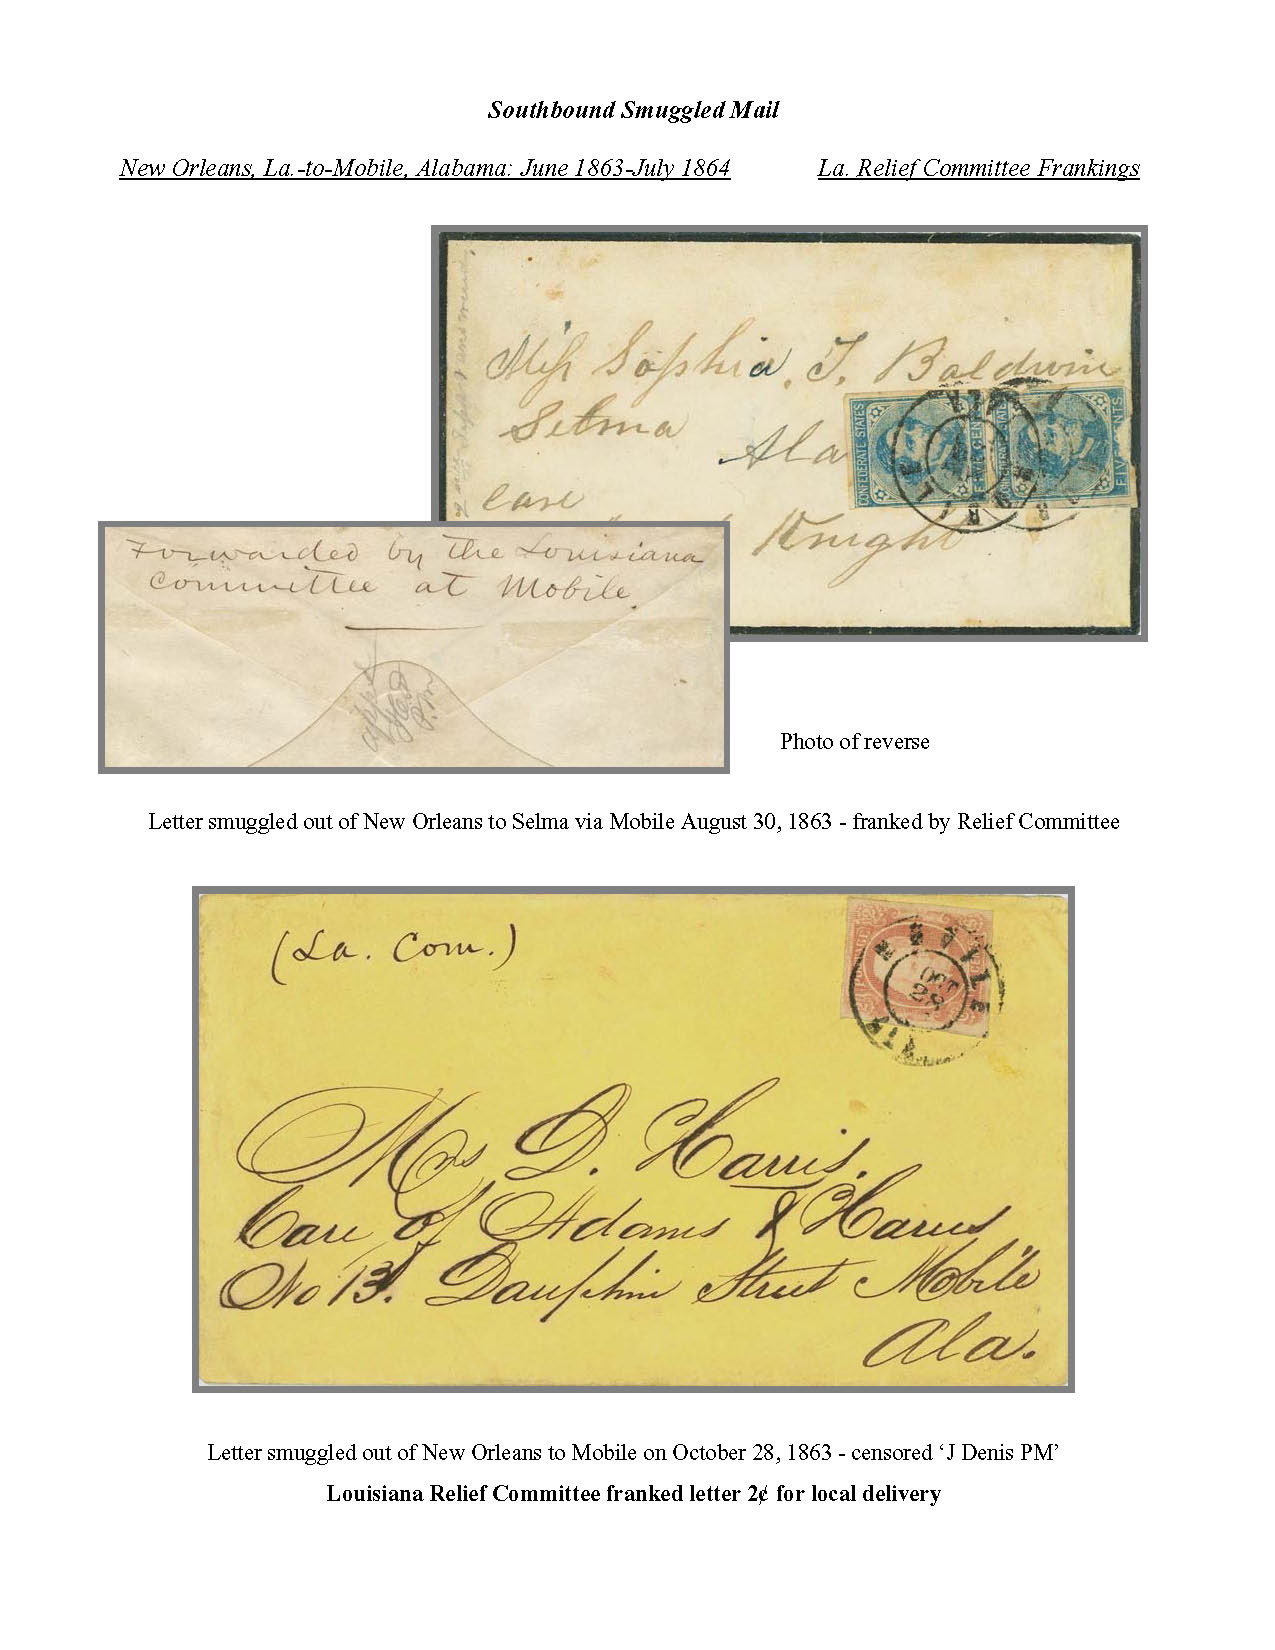 Southbound Smuggled Mail
New Orleans, La.-to-Mobile, Alabama: June 1863-July 1864
La. Relief Committee Frankings
Miss Sophia. T. Baldwin
Selma
Ala
care
Knight
CONFEDERATE STATES
FIVE CENTS
MOBILE
ALA
Forwarded by the Louisiana
Committee at Mobile.
Photo of reverse
Letter smuggled out of New Orleans to Selma via Mobile August 30, 1863 - franked by Relief Committee
(La. Com.)
MOBILE
OCT
28
ALA
Mrs D. Harris.
Care of Adams & Harris,
No 13. Dauphin Street Mobile
Ala.
Letter smuggled out of New Orleans to Mobile on October 28, 1863 - censored ‘J Denis PM’
Louisiana Relief Committee franked letter 2¢ for local delivery